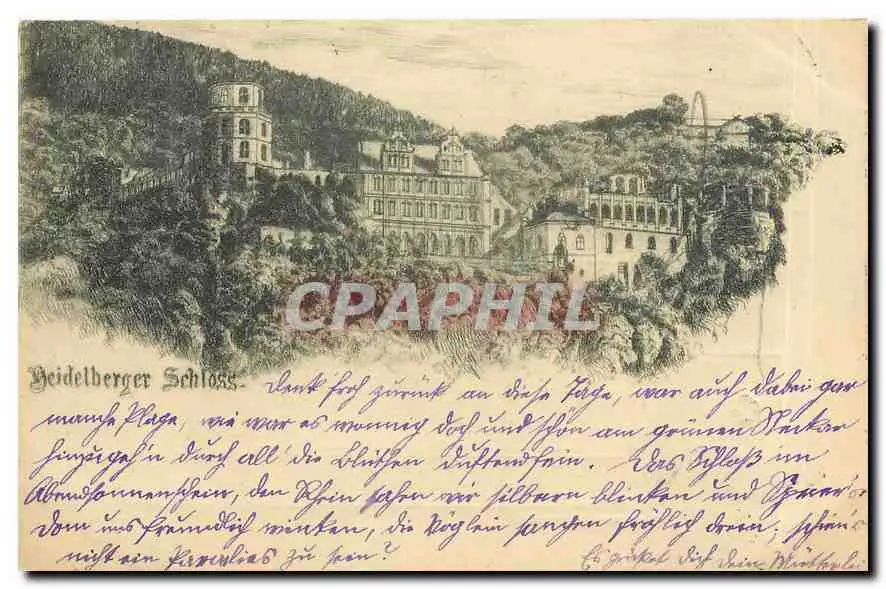 CPAPHIL
Heidelberger Schloss.
Denk froh zurück an diese Tage, war auch dabei gar
manche Plage, wie war es wonnig doch und schön am grünen Neckar
hinzugeh'n durch all' die Blüthen duftend fein. Das Schloß im
Abendsonnenschein, den Rhein sahen wir silbern blinken und Speier's
Dom uns freundlich winken, die Vöglein sangen fröhlich drein; schien's
nicht ein Paradies zu sein?
Es grüßet Dich Dein Mütterlei